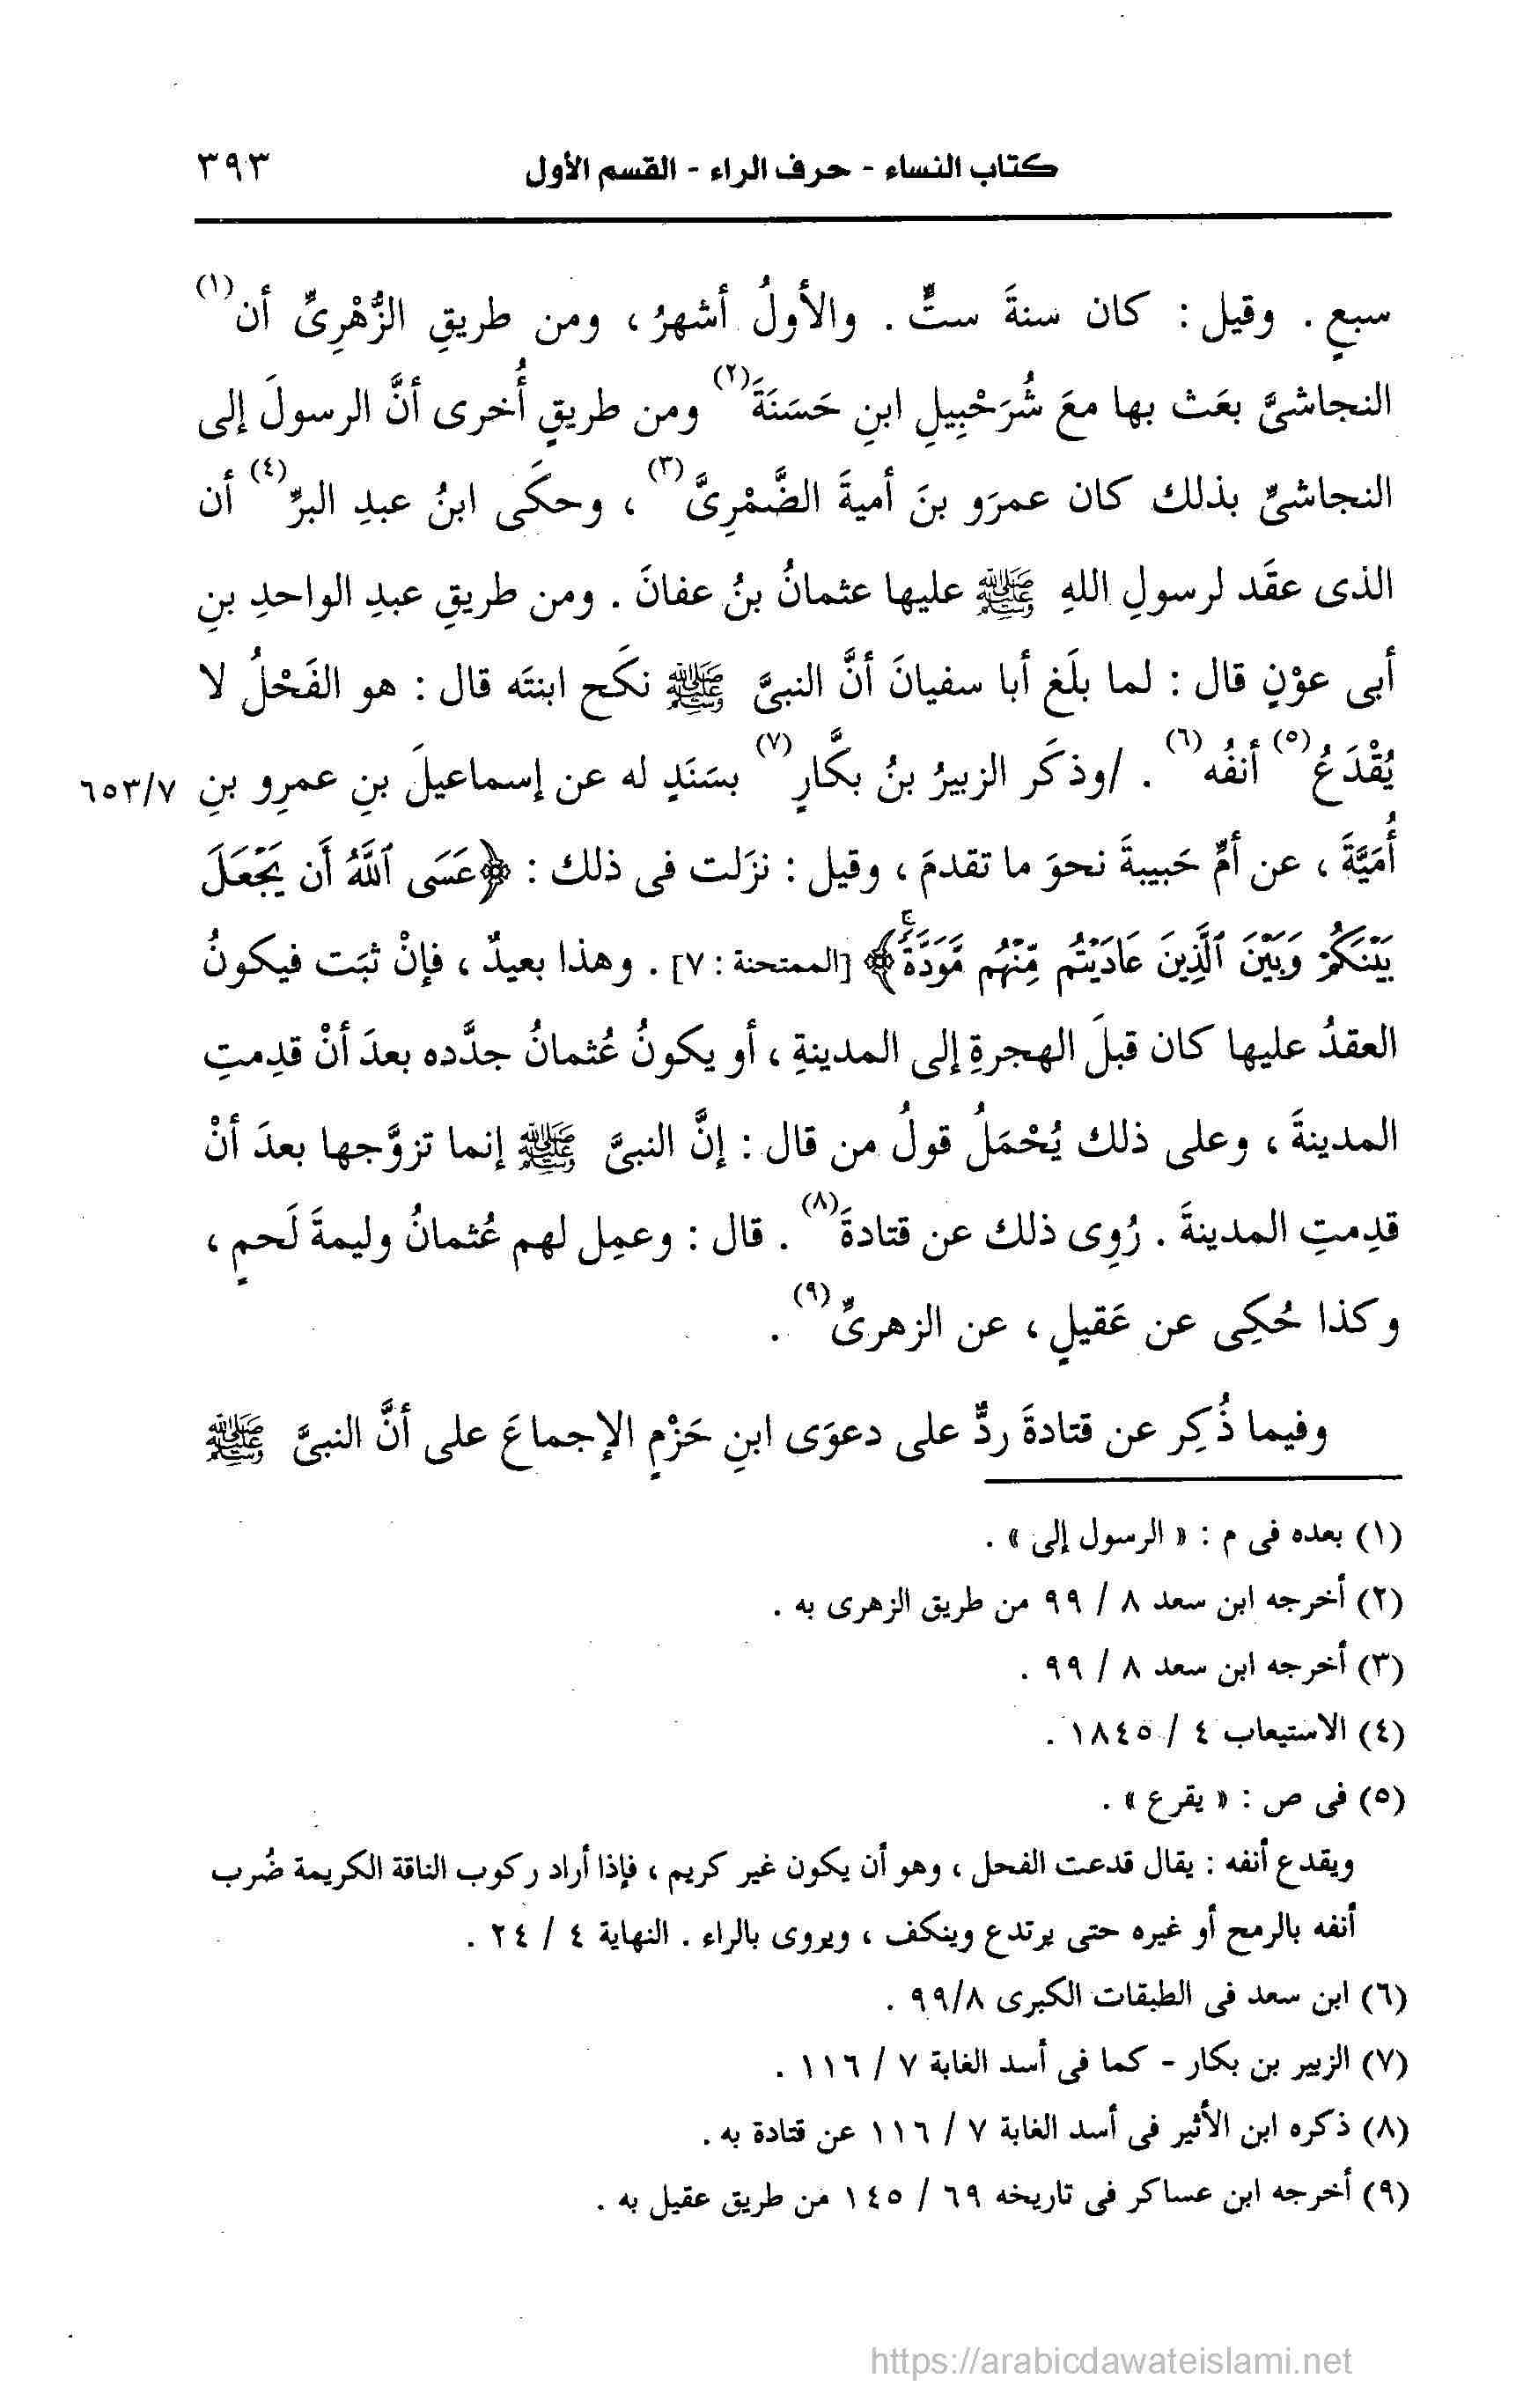 كتاب النساء - حرف الراء - القسم الأول ٣٩٣
سبعٍ . وقيل : كان سنةَ ستٍّ . والأولُ أشهرُ ، ومن طريقِ الزُّهْرِىِّ أن(١)
النجاشىَّ بعَث بها معَ شُرَحْبِيلِ ابنِ حَسَنَةَ(٢) ومن طريقٍ أُخرى أنَّ الرسولَ إلى
النجاشىِّ بذلك كان عمرَو بنَ أميةَ الضَّمْرِىَّ(٣) ، وحكَى ابنُ عبدِ البرِّ(٤) أن
الذى عقَد لرسولِ اللهِ ﷺ عليها عثمانُ بنُ عفانَ . ومن طريقِ عبدِ الواحدِ بنِ
أبى عوْنٍ قال : لما بلَغ أبا سفيانَ أنَّ النبىَّ ﷺ نكَح ابنتَه قال : هو الفَحْلُ لا
يُقْدَعُ(٥) أنفُه(٦) . /وذكَر الزبيرُ بنُ بكَّارٍ(٧) بسَنَدٍ له عن إسماعيلَ بنِ عمرِو بنِ ٦٥٣/٧
أُمَيَّةَ ، عن أمِّ حَبيبةَ نحوَ ما تقدمَ ، وقيل : نزَلت فى ذلك : ﴿عَسَى ٱللَّهُ أَن يَجْعَلَ
بَيْنَكُمْ وَبَيْنَ ٱلَّذِينَ عَادَيْتُم مِّنْهُم مَّوَدَّةًۚ﴾ [الممتحنة : ٧] . وهذا بعيدٌ ، فإنْ ثبَت فيكونُ
العقدُ عليها كان قبلَ الهجرةِ إلى المدينةِ ، أو يكونُ عُثمانُ جدَّده بعدَ أنْ قدِمتِ
المدينةَ ، وعلى ذلك يُحْمَلُ قولُ من قال : إنَّ النبىَّ ﷺ إنما تزوَّجها بعدَ أنْ
قدِمتِ المدينةَ . رُوِى ذلك عن قتادةَ(٨) . قال : وعمِل لهم عُثمانُ وليمةَ لَحمٍ ،
وكذا حُكِى عن عَقيلٍ ، عن الزهرىِّ(٩) .
وفيما ذُكِر عن قتادةَ ردٌّ على دعوَى ابنِ حَزْمٍ الإجماعَ على أنَّ النبىَّ ﷺ
(١) بعده فى م : « الرسول إلى » .
(٢) أخرجه ابن سعد ٨ / ٩٩ من طريق الزهرى به .
(٣) أخرجه ابن سعد ٨ / ٩٩ .
(٤) الاستيعاب ٤ / ١٨٤٥ .
(٥) فى ص : « يقرع » .
ويقدع أنفه : يقال قدعت الفحل ، وهو أن يكون غير كريم ، فإذا أراد ركوب الناقة الكريمة ضُرب
أنفه بالرمح أو غيره حتى يرتدع وينكف ، ويروى بالراء . النهاية ٤ / ٢٤ .
(٦) ابن سعد فى الطبقات الكبرى ٩٩/٨ .
(٧) الزبير بن بكار - كما فى أسد الغابة ٧ / ١١٦ .
(٨) ذكره ابن الأثير فى أسد الغابة ٧ / ١١٦ عن قتادة به .
(٩) أخرجه ابن عساكر فى تاريخه ٦٩ / ١٤٥ من طريق عقيل به .
https://arabicdawateislami.net